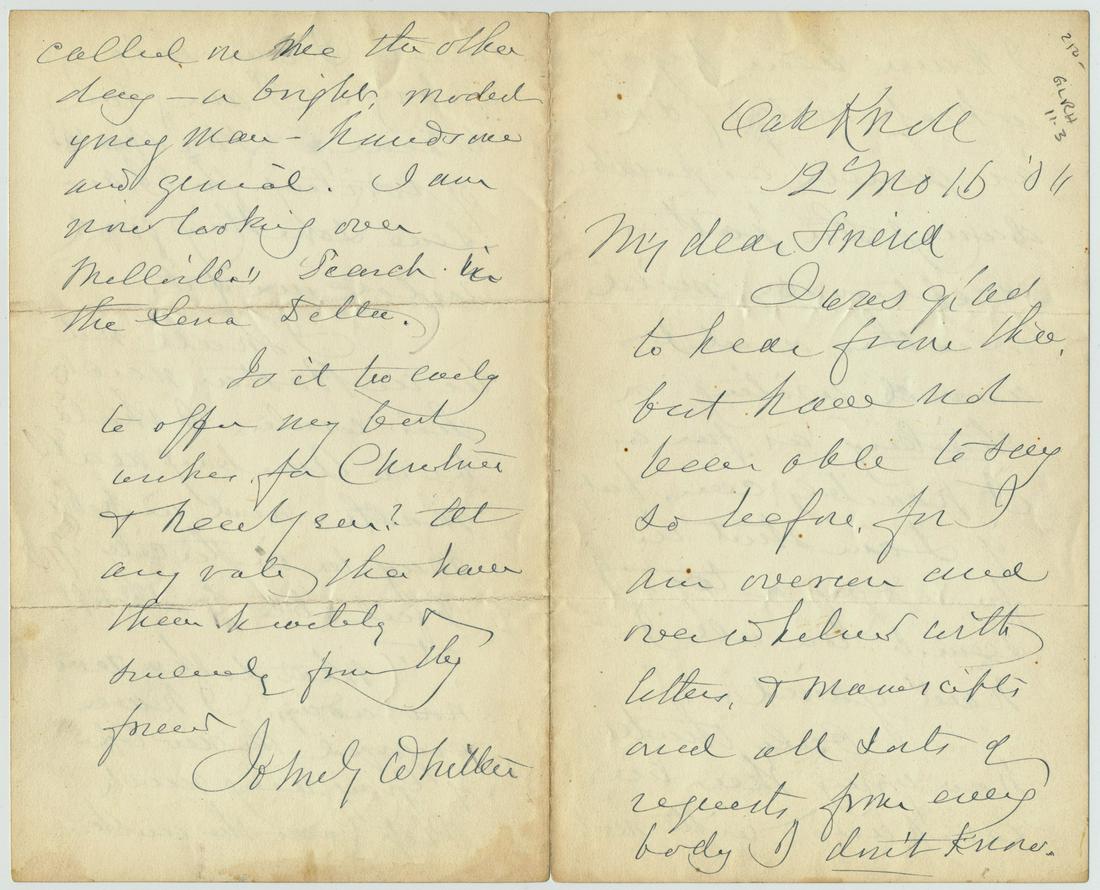 Oak Knoll
12 Mo 15 '84
My dear Friend
I was glad
to hear from thee,
but have not
been able to say
so before, for I
am overrun and
overwhelmed with
letters, & manuscripts
and all sorts of
requests from every
body I don't know.
called on me the other
day — a bright, modest
young man — handsome
and genial. I am
now looking over
Melville's Search in
the Lena Delta.
Is it too early
to offer my best
wishes for Christmas
& New Year? At
any rate, thee have
them heartily &
sincerely from thy
friend
John G Whittier
210-
11.3